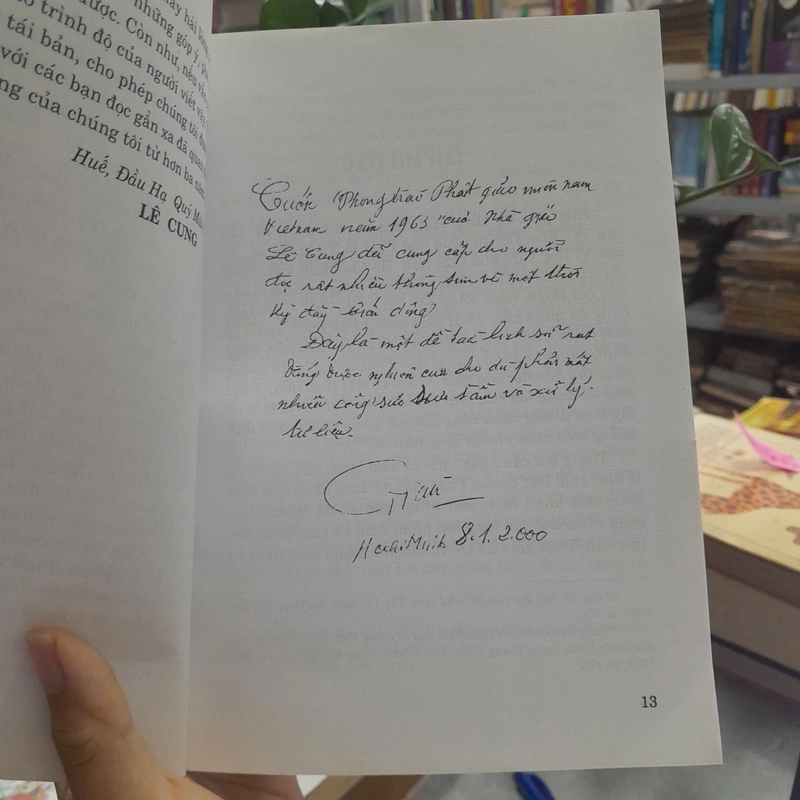 hay hài lòng
những góp ý, phê
được. Còn như, nếu vẫn
trình độ của người viết vậy
tái bản, cho phép chúng tôi được
với các bạn đọc gần xa đã quan
ng của chúng tôi từ hơn ba năm
Huế, Đầu Hạ Quý M
LÊ CUNG
Cuốn "Phong trào Phật giáo miền nam
Vietnam năm 1963" của Nhà giáo
Lê Cung để cung cấp cho người
đọc rất nhiều thông tin về một thời
kỳ đầy biến động
Đây là một đề tài lịch sử rất
đáng được nghiên cứu cho dù phải mất
nhiều công sức sưu tầm và xử lý
tư liệu.
HochiMinh 8.1.2.000
13